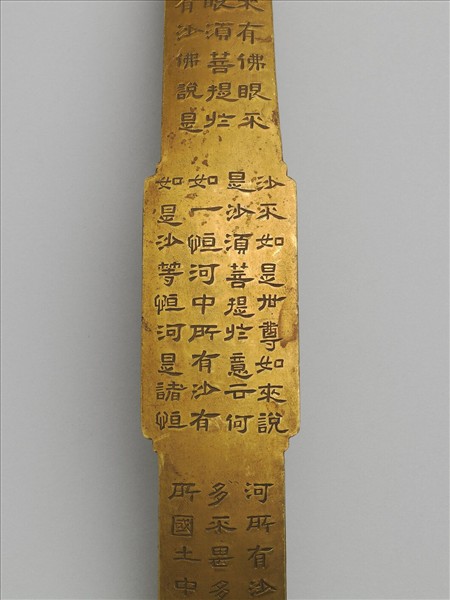 來有佛眼不
眼須菩提於
有沙佛說是
沙不如是世尊如來說
是沙須菩提於意云何
如一恒河中所有沙有
如是沙等恒河是諸恒
河所有沙
多不甚多
所國土中